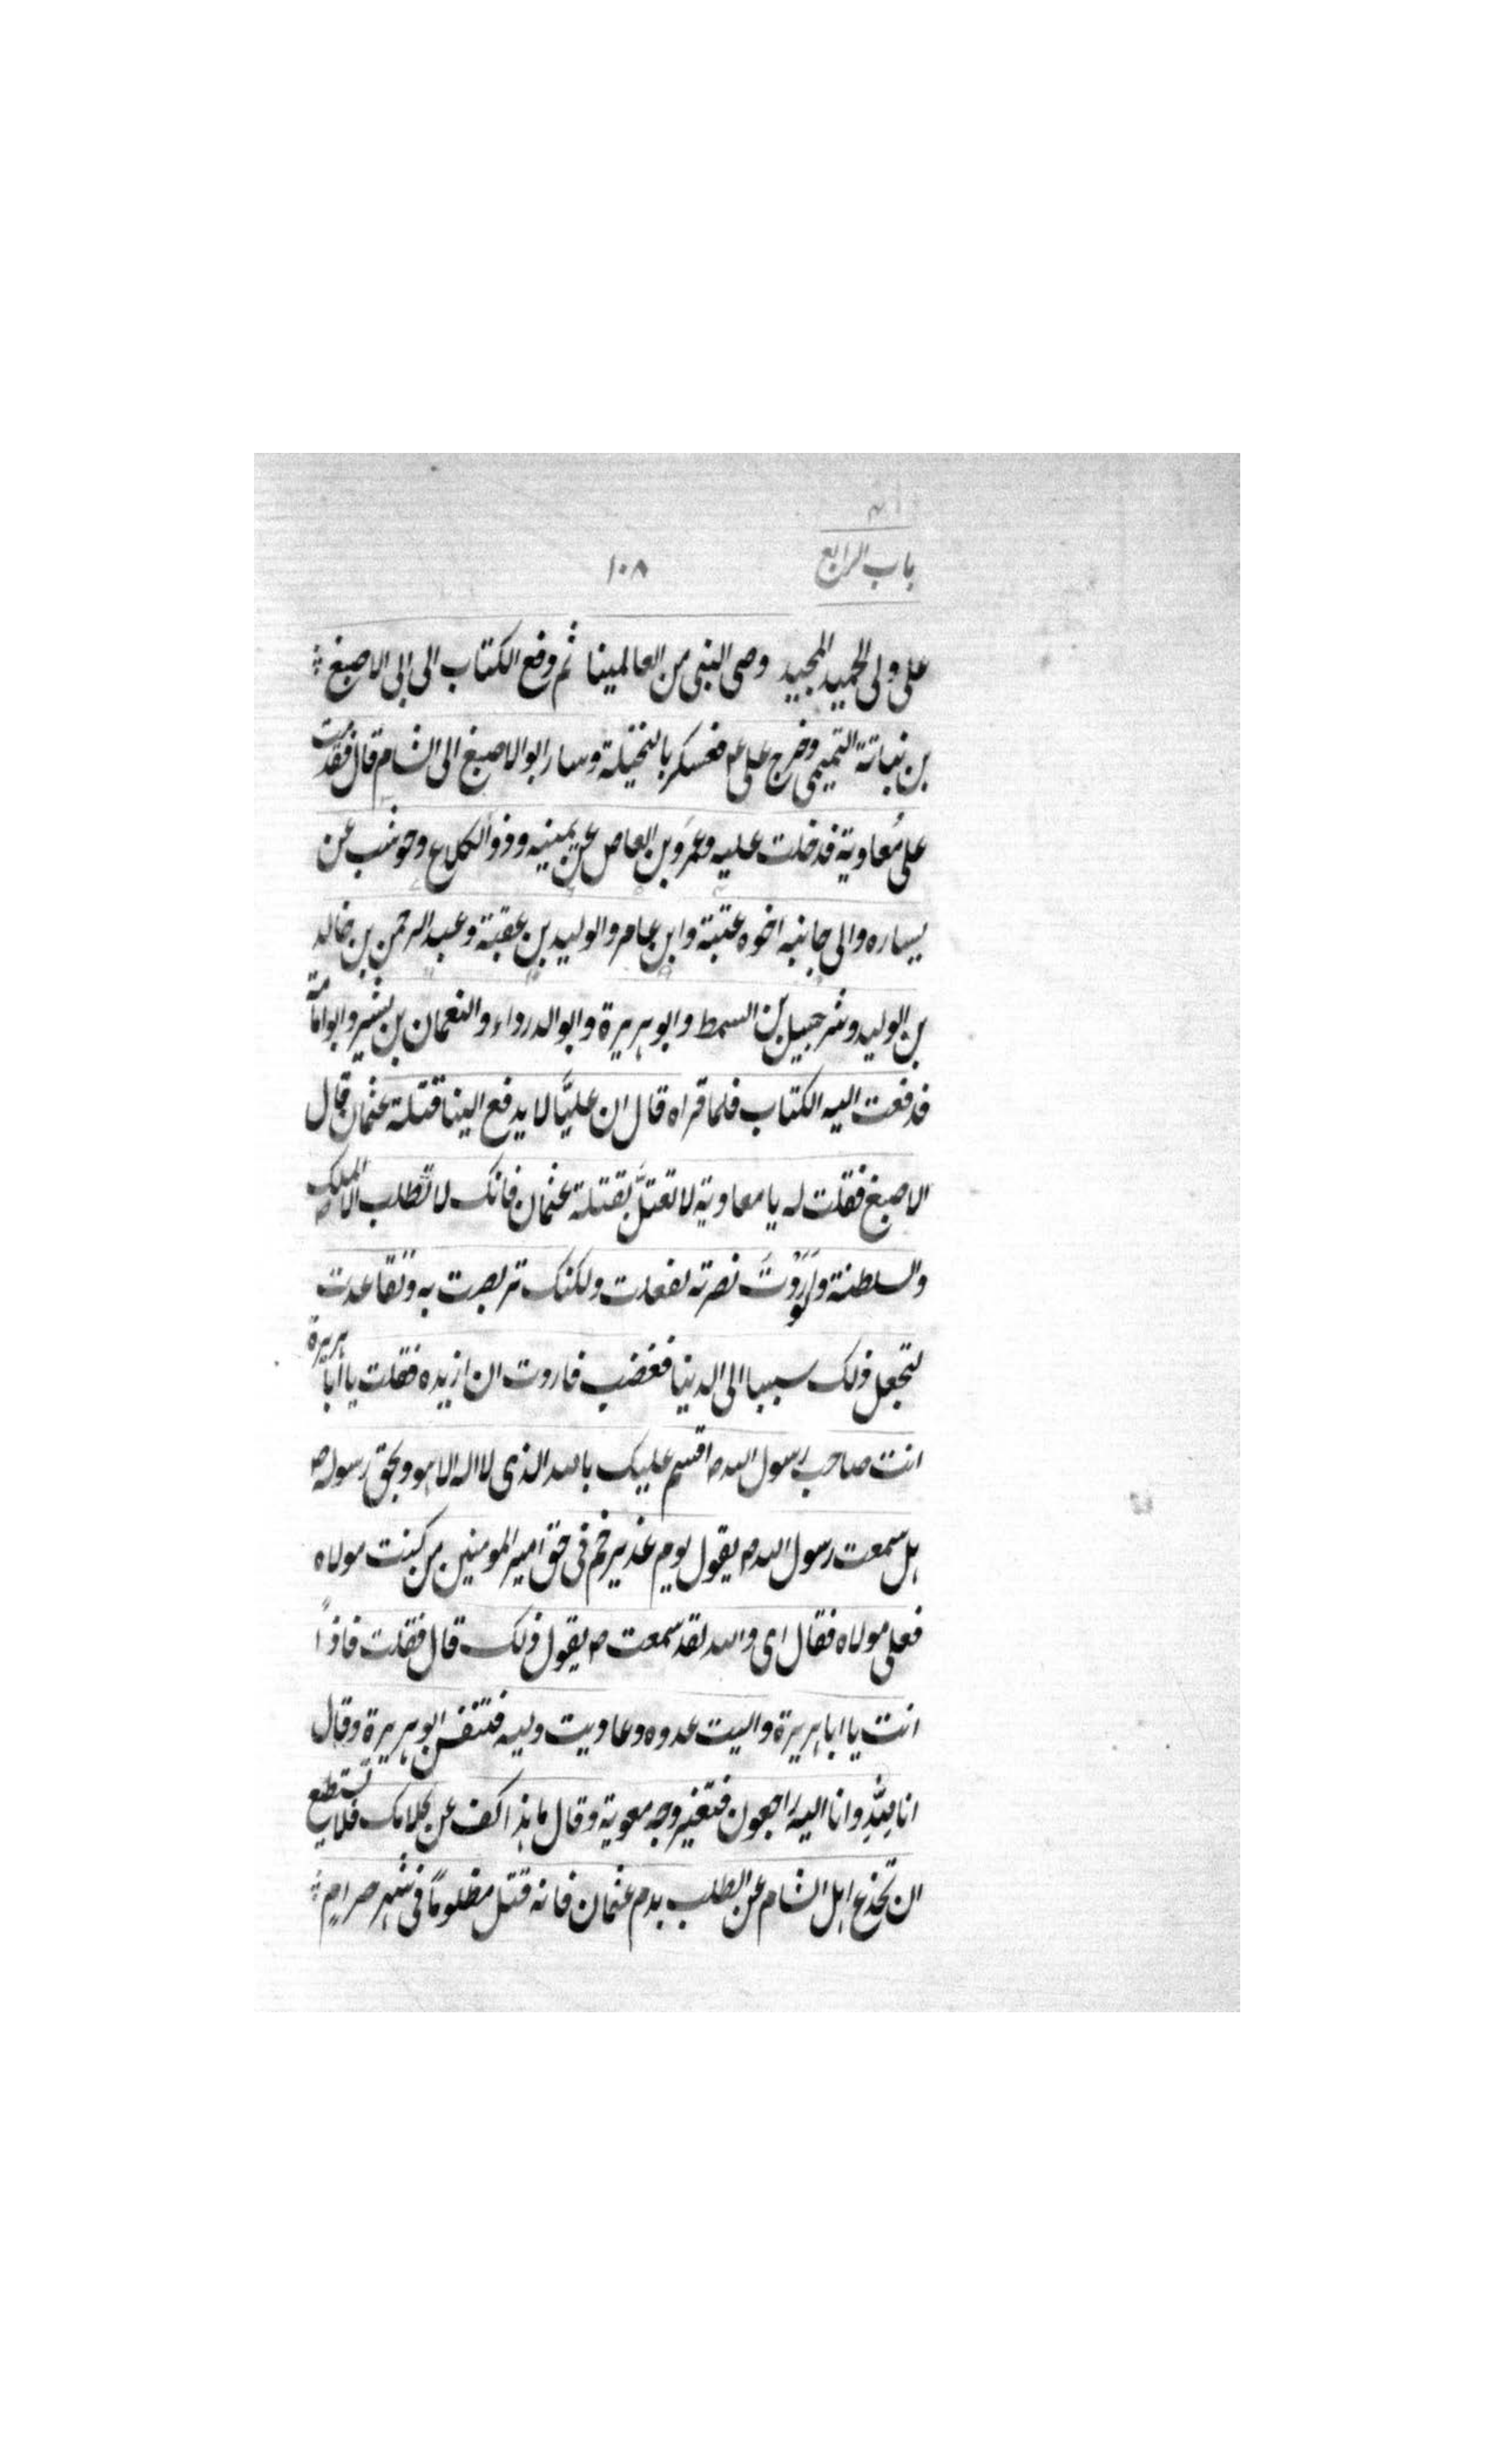 باب الرابع
١٠٨
على ولى الحميد المجيد وصى النبى من العالمينا ثم دفع الكتاب الى ابى الاصبغ
بن نباتة التميمى وخرج على ع فعسكر بالنخيلة وسار ابو الاصبغ الى الشام قال فقدمت
على مُعاوية فدخلت عليه وعمَرو بن العاص عن يمينه وذو الكلاع وحوشب عن
يساره والى جانبه اخوه عتبة وابن عامر والوليد بن عقبة وعبد الرحمن بن خالد
بن الوليد وشرجبيل بن السمط وابو هريرة وابو الدرداء والنعمان بن بشير وابو امامة
فدفعت اليه الكتاب فلما قراه قال ان عليًّا لا يدفع الينا قتلة عثمان قال
الاصبغ فقلت له يا معاوية لا تعتلَّ بقتلة عثمان فانك لا تطلب الا الملك
والسلطنة ولو اَرَدْتَ نصرته لفعلت ولكنك تربصت به وتقاعدت
لتجعل ذلك سببا الى الدنيا فغضب فاردت ان ازيده فقلت يا ابا هريرة
انت صاحب رسول الله ص اقسم عليك بالله الذى لا اله الا هو وبحق رسوله ص
هل سمعت رسول الله ص يقول يوم غدير خم فى حق امير المومنين من كنت مولاه
فعلى مولاه فقال اى والله لقد سمعت ص يقول ذلك قال فقلت فاذاً
انت يا ابا هريرة واليت عدوه وعاديت وليه فتنفس ابو هريرة وقال
انا لِلّهِ وانا اليه راجعون فتغير وجه معوية وقال ما هذا كف عن كلامك فلا تستطيع
ان تخدع اهل الشام عن الطلب بدم عثمان فانه قتل مظلومًا فى شهر حرام